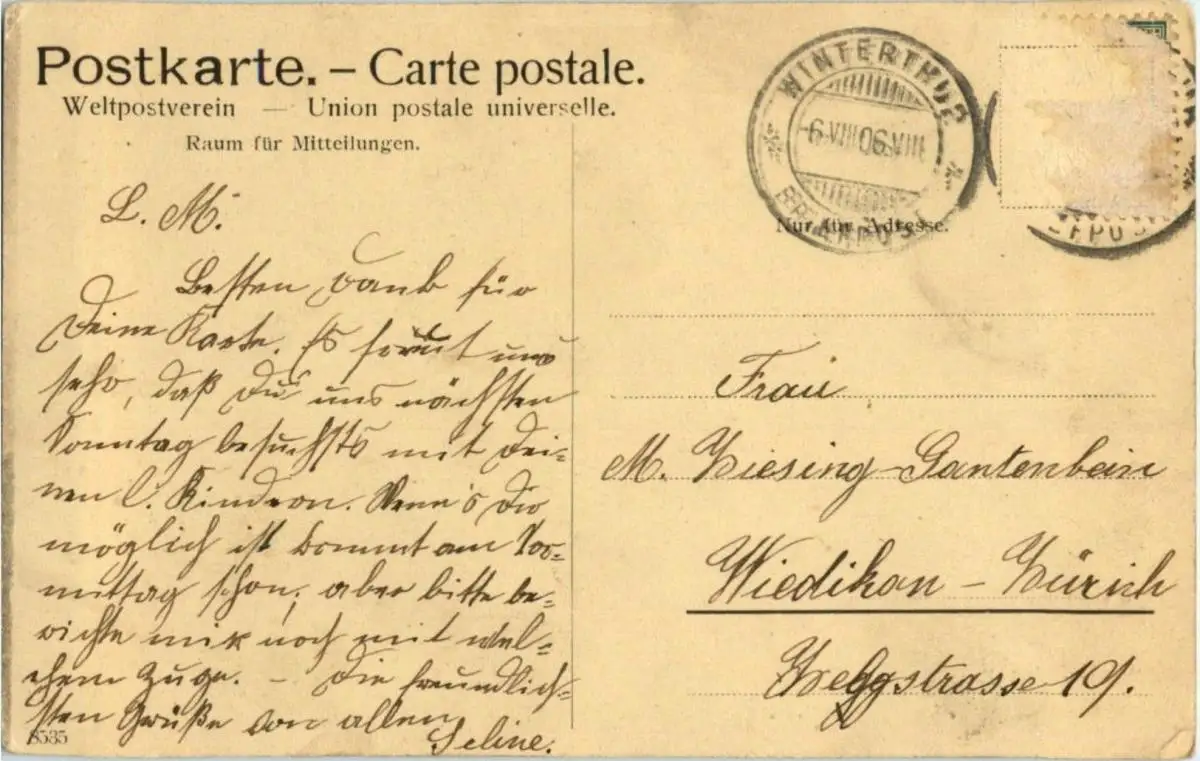 Postkarte. – Carte postale.
Weltpostverein — Union postale universelle.
Raum für Mitteilungen.
L. M.
Besten Dank für
Deine Karte. Es freut uns
sehr, daß Du uns nächsten
Sonntag besuchst mit Dei-
nen l. Kindern. Wenn's Dir
möglich ist kommt am Vor-
mittag schon, aber bitte be-
richte mir noch mit wel-
chem Zuge. – Die freundlich-
sten Grüße von allen
Seline.
8535
WINTERTHUR
BRIEFPOST
Nur für Adresse.
Frau
M. Ziesing-Gantenbein
Wiedikon – Zürich
Zweggstrasse 19.